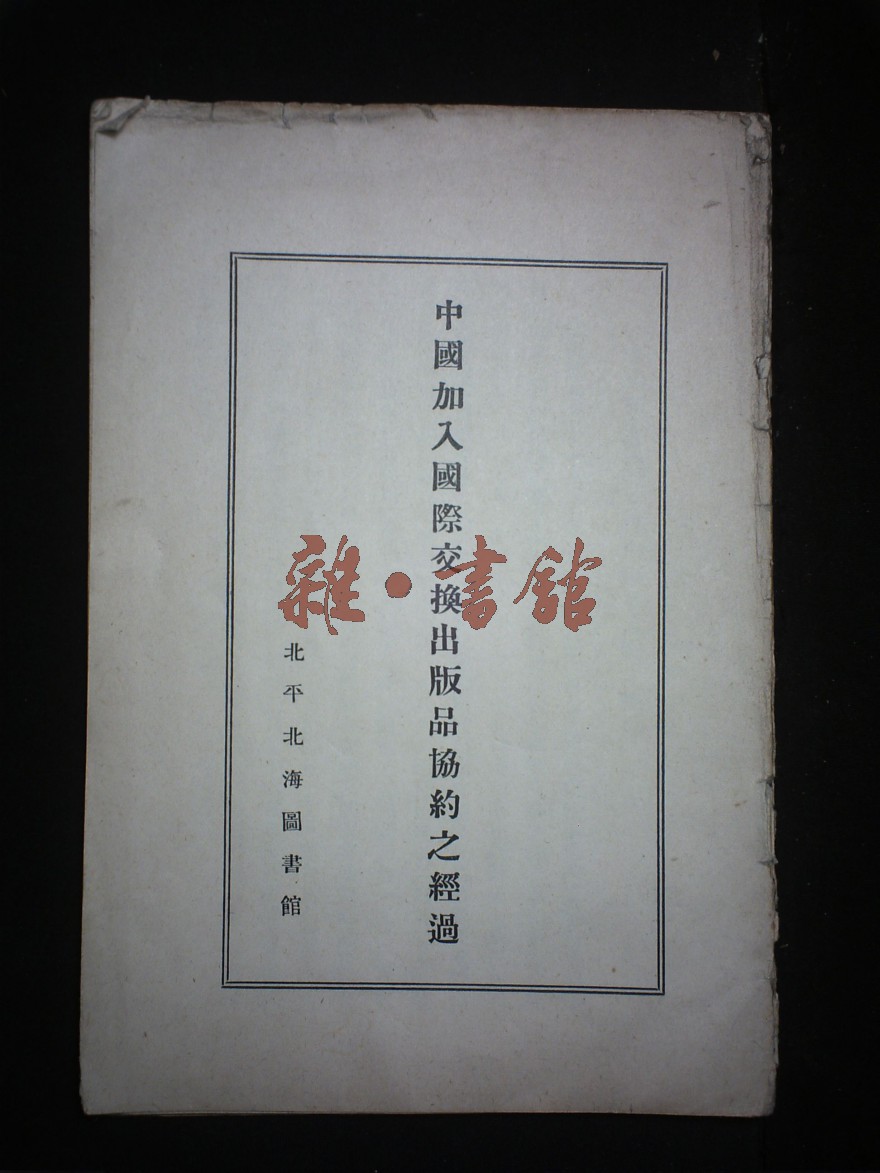 中國加入國際交換出版品協約之經過
北平北海圖書館
雜·書館